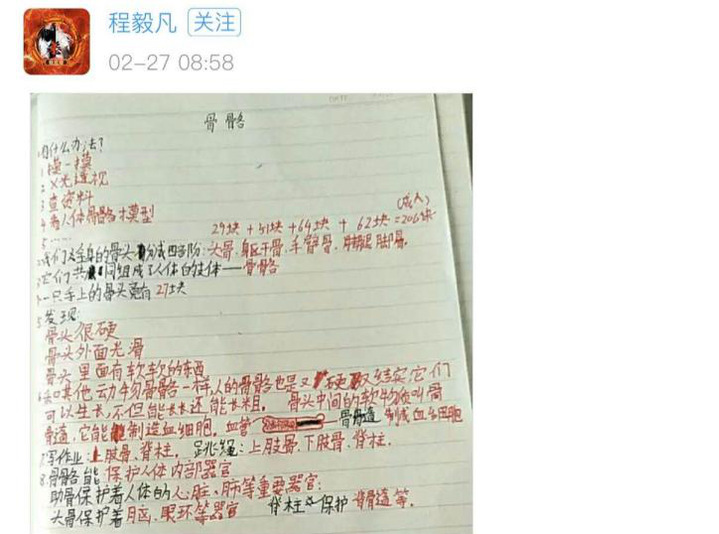 程毅凡 关注
02-27 08:58
骨骼
1用什么办法?
1 摸一摸
2 X光透视
3 查资料
4 看人体骨骼模型
5 ……
(成人)
29块+51块+64块+62块=206块
2我们全身的骨头分成四部阶:头骨、身区干骨、手臂骨、脚腿脚骨。
3它们共同组成了人体的支体——骨骼
4一只手上的骨头竟有27块
5 发现:
骨头很硬
骨头外面光滑
骨头里面有软软的东西
6和其他动物骨骼一样,人的骨骼也是又硬又结实它们
可以生长,不但能长长还能长粗。骨头中间的软物质叫骨
骨造,它能制造血细胞。血管 骨骨造 制成血细胞
7写作业:上肢骨、脊柱。 跳绳:上肢骨、下肢骨、脊柱。
8.骨骼能保护人体内部器官
助骨保护着人体的心脏、肺等重要器官;
头骨保护着脑、眼环等器官 脊柱 保护脊骨造等。